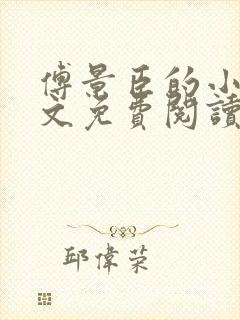 傅景臣的小
文免費閱讀
邱偉榮